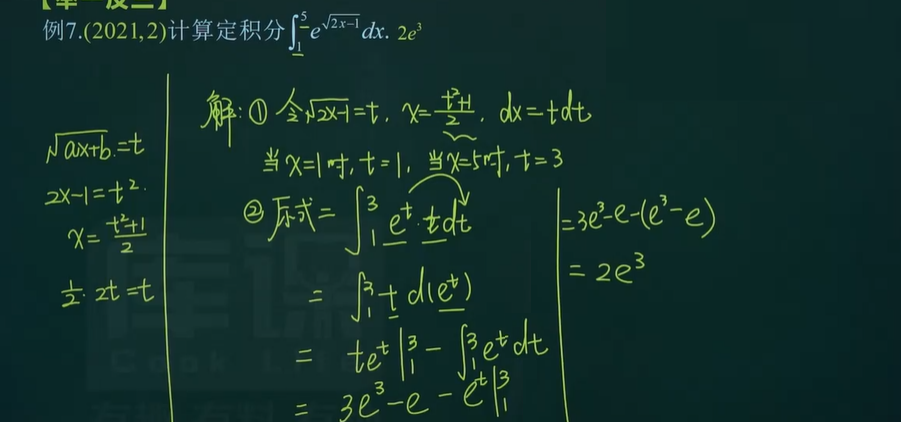 例7.(2021,2)计算定积分∫₁⁵e^{√(2x-1)}dx. 2e³
√(ax+b)=t
2x-1=t².
x=(t²+1)/2
½·2t=t
解:① 令√(2x-1)=t, x=(t²+1)/2, dx=tdt
当x=1时,t=1, 当x=5时,t=3
② 原式=∫₁³e^t·tdt
=∫₁³t d(e^t)
=te^t|₁³-∫₁³e^tdt
=3e³-e-e^t|₁³
=3e³-e-(e³-e)
=2e³